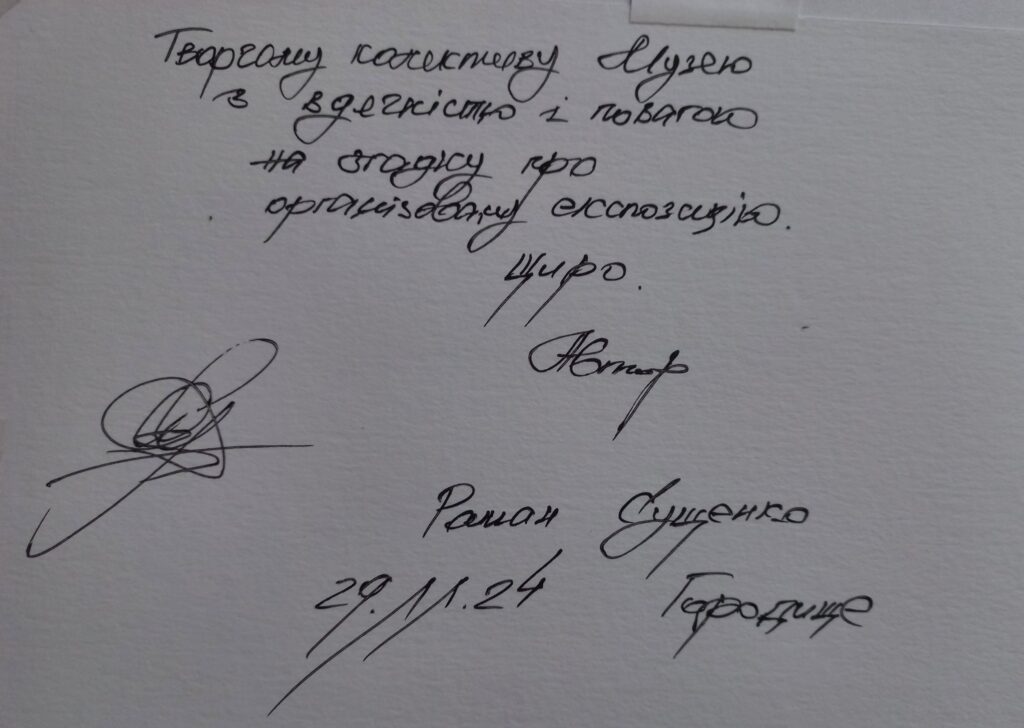 Творчому колективу Музею
з вдячністю і повагою
на згадку про
організовану експозицію.
Щиро.
Автор
Роман Сущенко
29.11.24 Городище